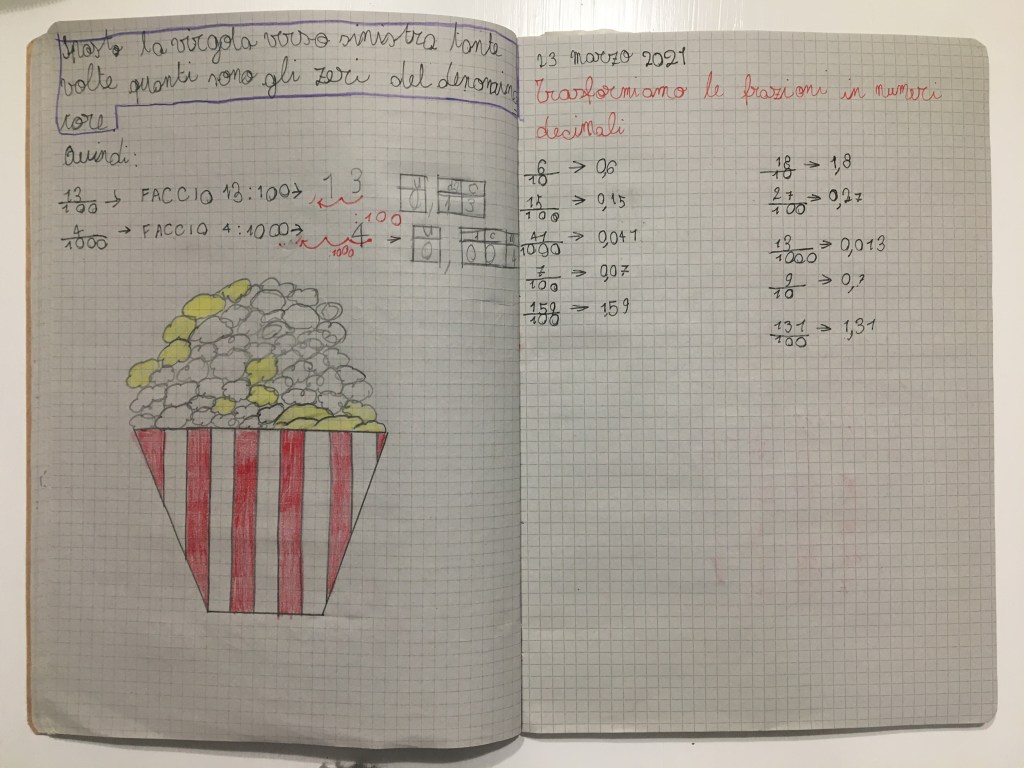 Sposto la virgola verso sinistra tante
volte quanti sono gli zeri del denomina
tore.
Quindi:
13/100 → FACCIO 13:100→ 1 3 :100 U d c 0, 1 3
4/1000 → FACCIO 4:1000→ 4 1000 → U d c m 0, 0 0 4
23 marzo 2021
Trasformiamo le frazioni in numeri
decimali
6/10 → 0,6
15/100 → 0,15
41/1000 → 0,041
7/100 → 0,07
159/100 → 159
18/10 → 1,8
27/100 → 0,27
13/1000 → 0,013
9/10 →
131/100 → 1,31